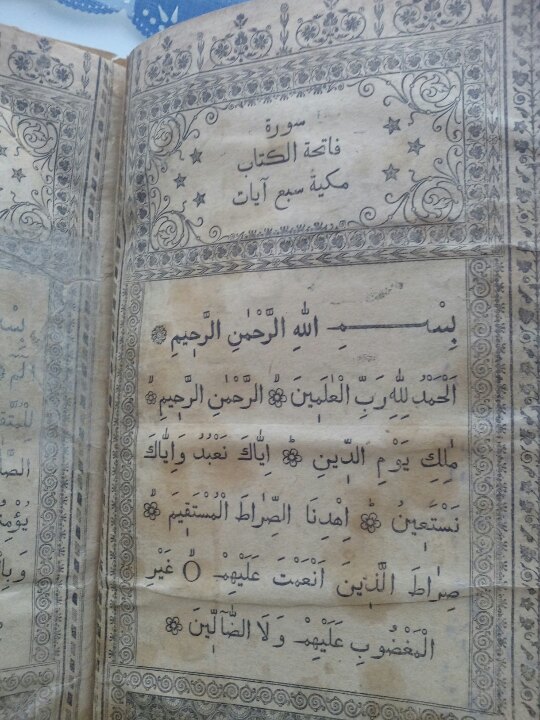 سورة
فاتحة الكتاب
مكية سبع آيات
بِسْمِ اللهِ الرَّحْمٰنِ الرَّحِيمِ
اَلْحَمْدُ لِلّٰهِ رَبِّ الْعٰلَمِينَ الرَّحْمٰنِ الرَّحِيمِ
مٰلِكِ يَوْمِ الدِّينِ اِيَّاكَ نَعْبُدُ وَاِيَّاكَ
نَسْتَعِينُ اِهْدِنَا الصِّرَاطَ الْمُسْتَقِيمَ
صِرَاطَ الَّذِينَ اَنْعَمْتَ عَلَيْهِمْ غَيْرِ
الْمَغْضُوبِ عَلَيْهِمْ وَلَا الضَّالِّينَ